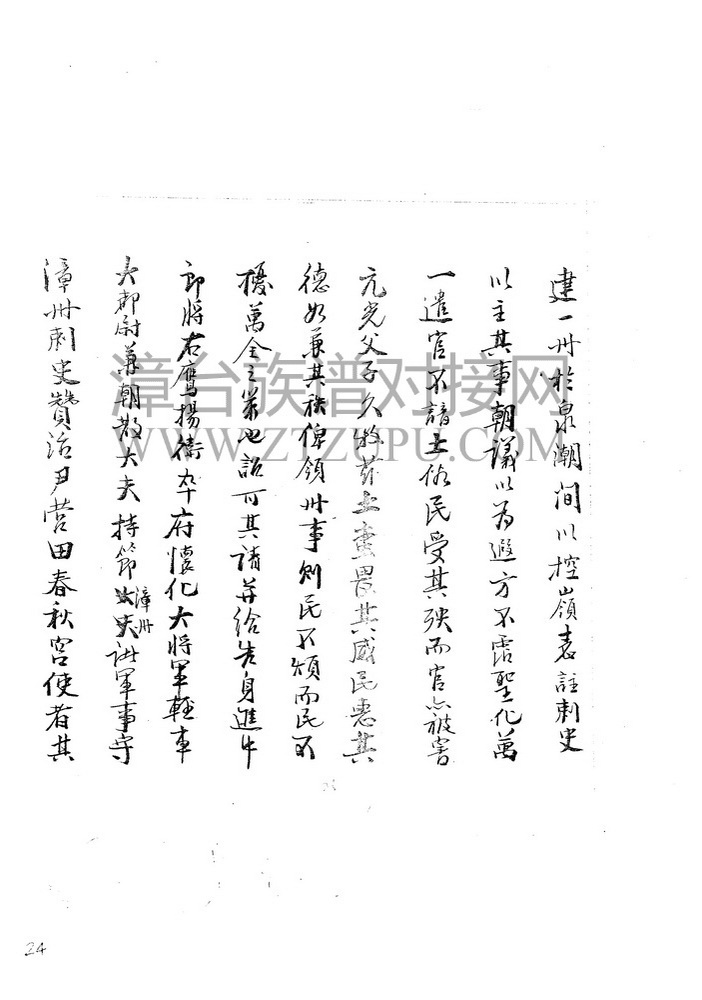 建一州於泉潮間以控嶺表註刺史
以主其事朝議以為遐方不霑聖化萬
一遣官不諳土俗民受其殃而官亦被害
元光父子久牧茲土蠻畏其威民惠其
德如兼其秩俾領州事則民不煩而民不
擾萬全之策也詔可其請并給告身進中
郎將右鷹揚衛率府懷化大將軍輕車
大都尉兼朝散大夫持節漳州諸軍事守
漳州刺史贊治尹營田春秋宮使者其
漳台族谱对接网
WWW.ZTZUPU.COM
24